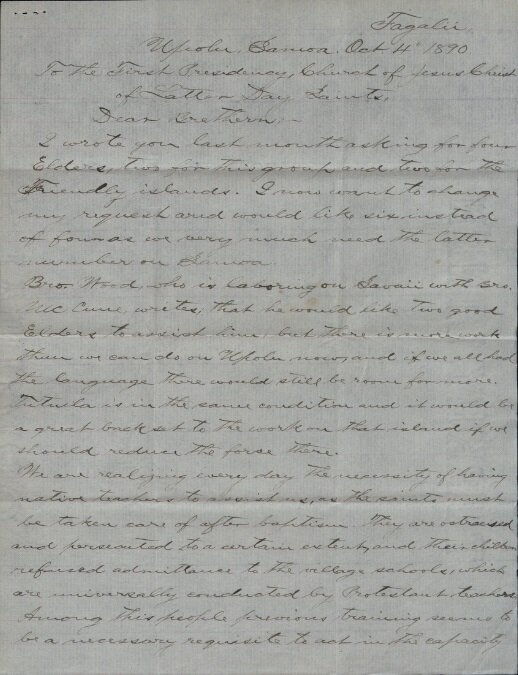 Fagalii
Upolu, Samoa. Oct 4th 1890
To the First Presidency, Church of Jesus Christ
of Latter Day Saints,
Dear Brethern,-
I wrote you last month asking for four
Elders, two for this group and two for the
Friendly islands. I now want to change
my request and would like six instead
of four as we very much need the latter
number on Samoa.
Bro. Wood who is laboring on Savaii with Bro.
McCune, writes, that he would like two good
Elders to assist him, but there is more work
than we can do on Upolu now, and if we all had
the language there would still be room for more.
Tutuila is in the same condition and it would be
a great back set to the work on that island if we
should reduce the forse there.
We are realizing every day the necessity of having
native teachers to assist us, as the saints must
be taken care of after baptism. They are ostracised
and persecuted to a certain extent, and their children
refused admittance to the village schools, which
are universally conducted by Protestant teachers.
Among this people previous training seems to
be a necessary requisite to act in the capacity